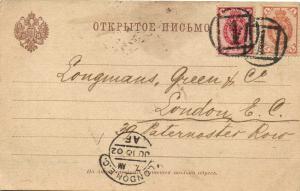 ОТКРЫТОЕ ПИСЬМО
1
1
Longmans, Green & Co
London E. C.
39 Paternoster Row
LONDON E.C.
AF
JU 15 02